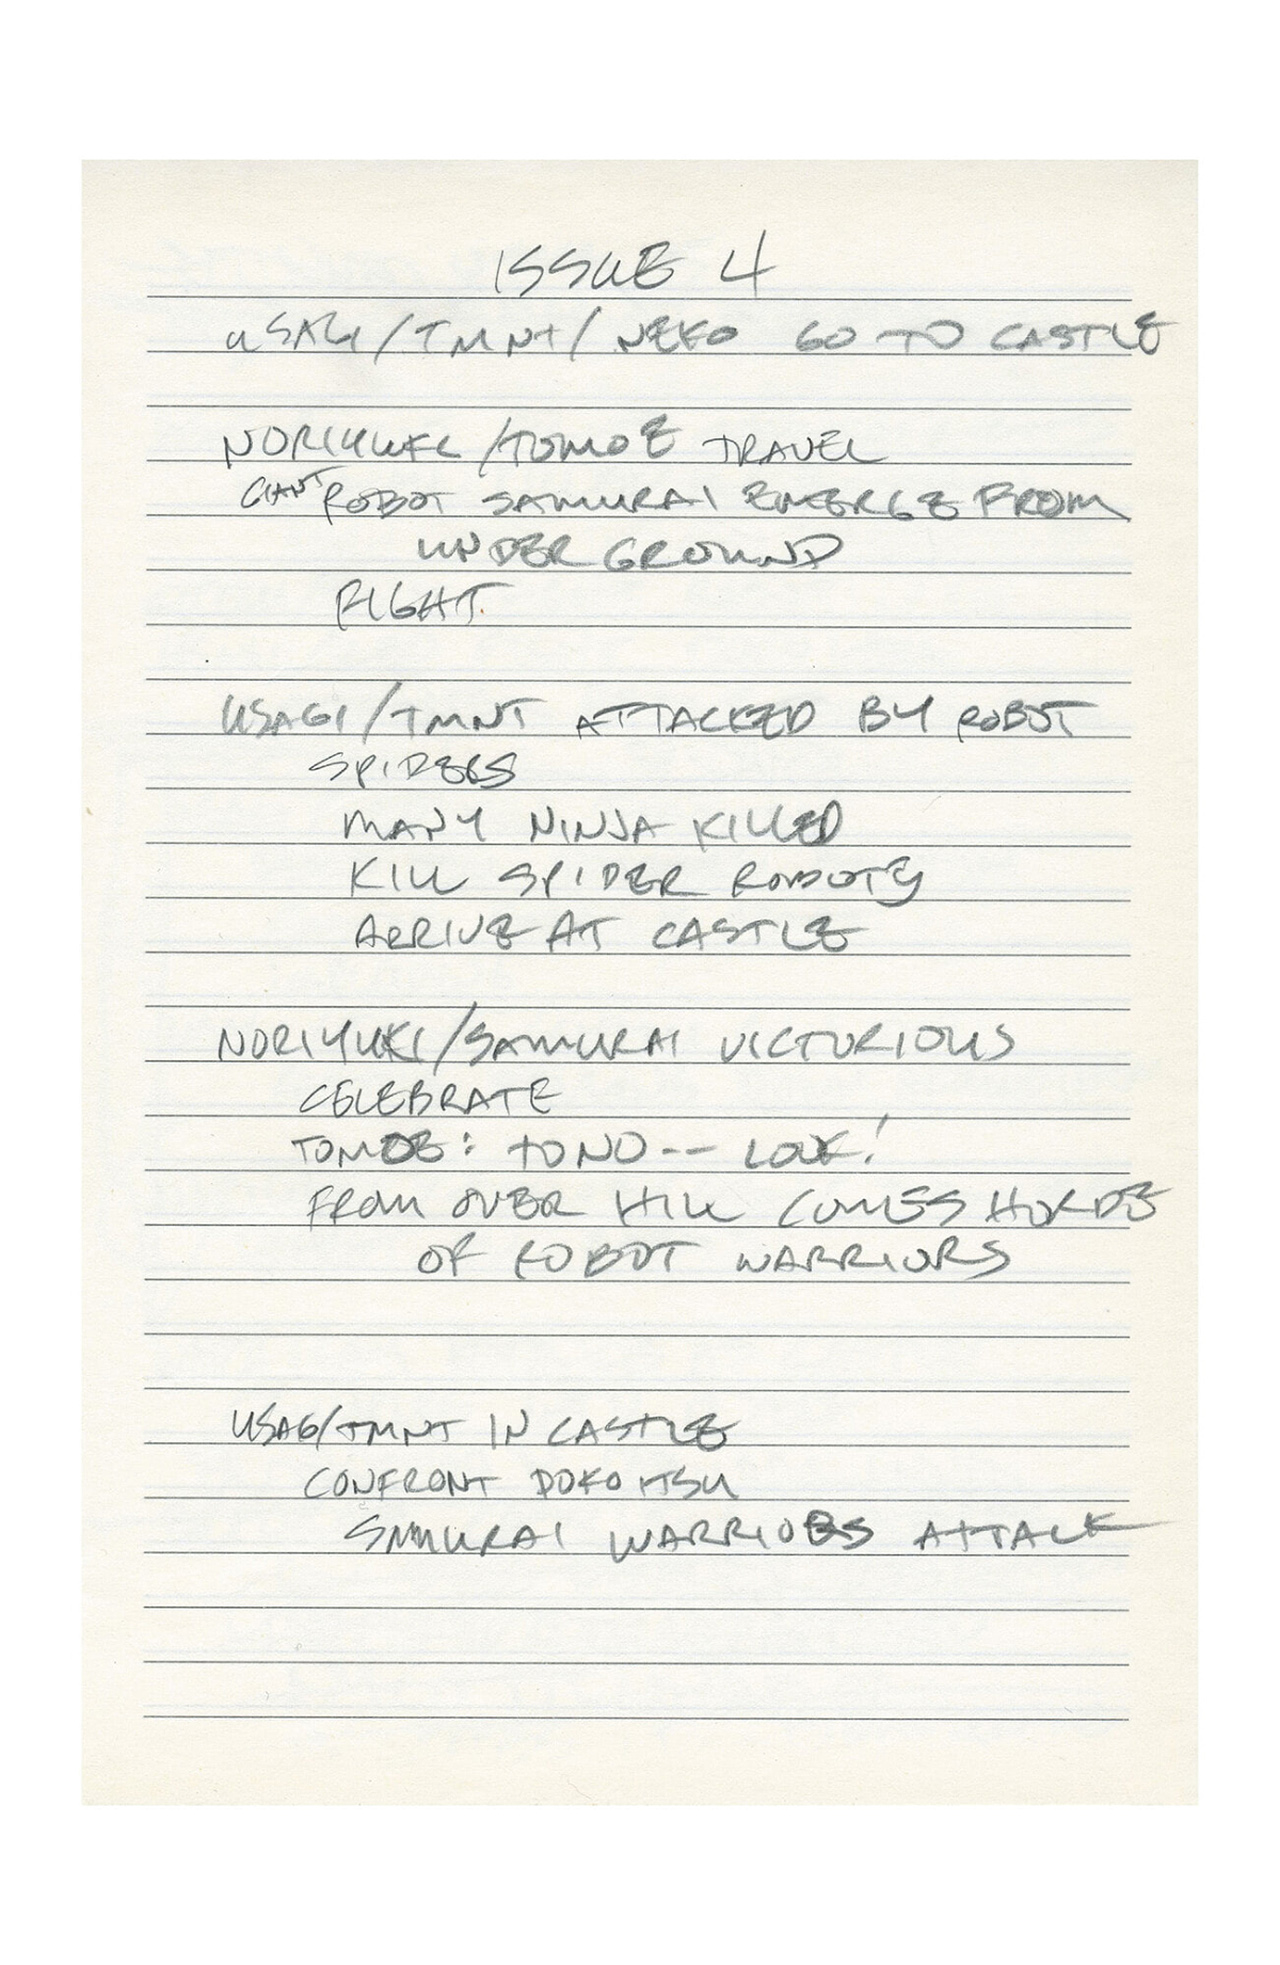 ISSUE 4
USAGI/TMNT/NEKO GO TO CASTLE
NORIYUKI/TOMOE TRAVEL
GIANT ROBOT SAMURAI EMERGE FROM
UNDER GROUND
FIGHT
USAGI/TMNT ATTACKED BY ROBOT
SPIDERS
MANY NINJA KILLED
KILL SPIDER ROBOTS
ARRIVE AT CASTLE
NORIYUKI/SAMURAI VICTORIOUS
CELEBRATE
TOMOE: TONO-- LOOK!
FROM OVER HILL COMES HORDE
OF ROBOT WARRIORS
USAGI/TMNT IN CASTLE
CONFRONT
SAMURAI WARRIORS ATTACK